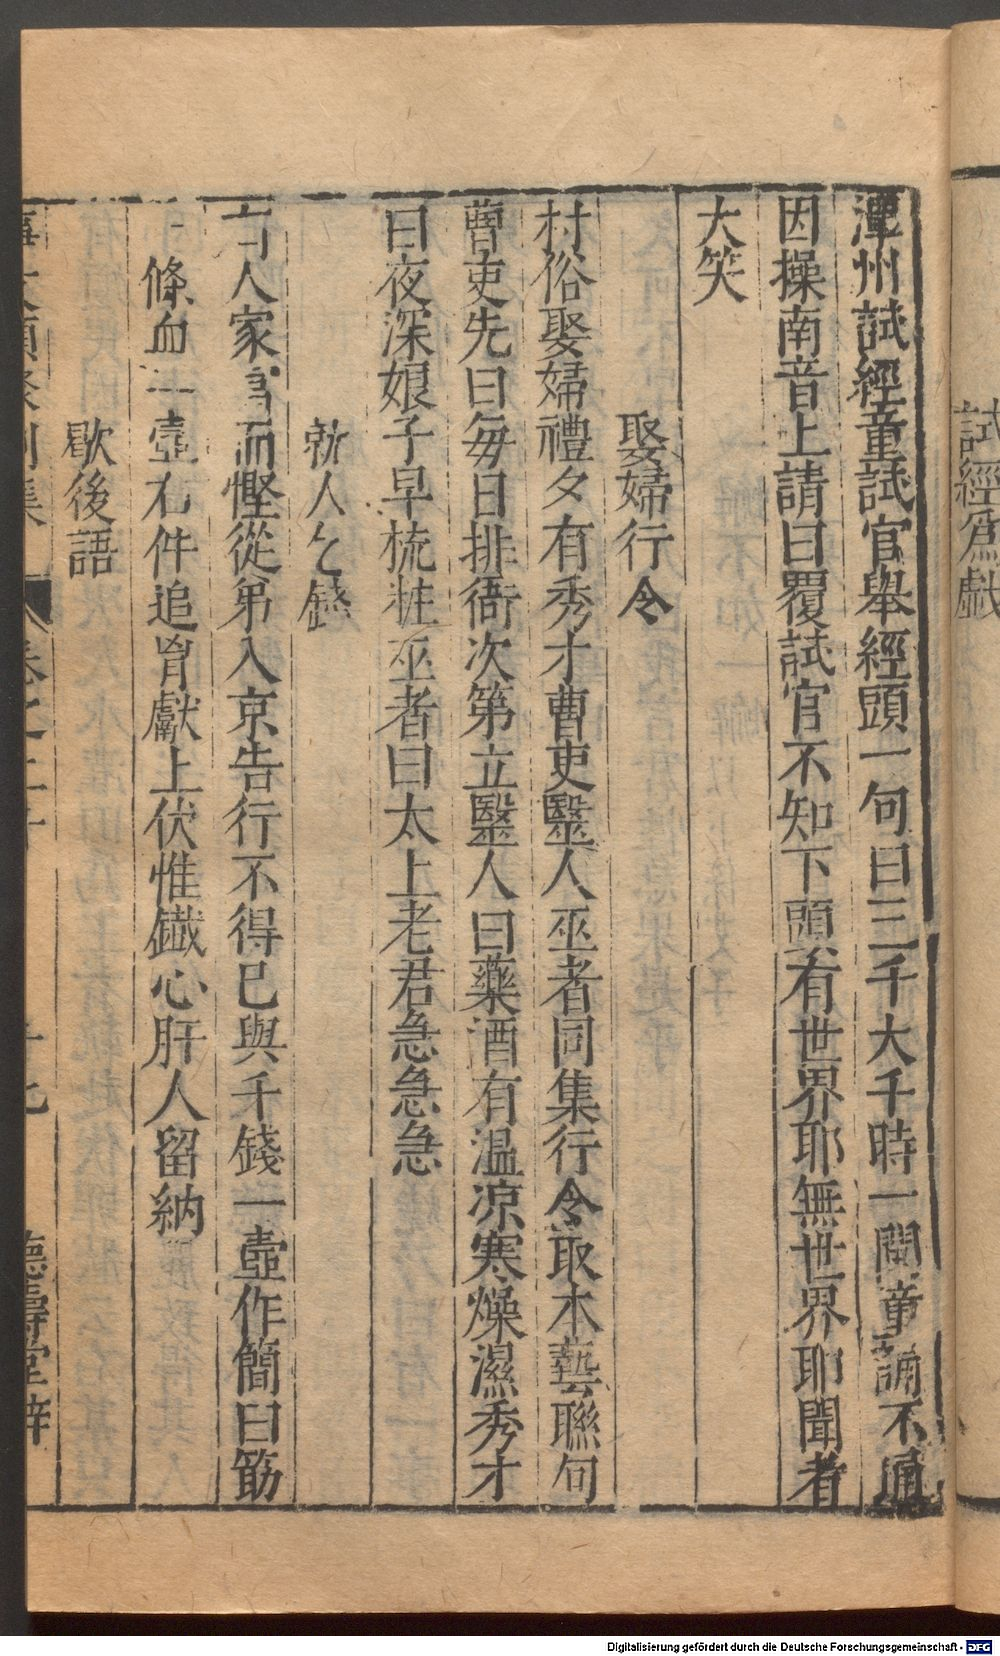 試經爲戲
潭州試經童試官舉經頭一句曰三千大千時一閧童誦不通
因操南音上請曰覆試官不知下頭有世界耶無世界耶聞者
大笑
娶婦行令
村俗娶婦禮夕有秀才曹吏毉人巫者同集行令取本藝聯句
曹吏先曰每日排衙次第立毉人曰藥酒有温凉寒燥濕秀才
曰夜深娘子早梳粧巫者曰太上老君急急急
人乞錢
有人家 而慳從弟入京告行不得已與千錢一壺作簡曰筯
條血一壺右件追胷獻上伏惟鐵心肝人留納
歇後語
事文類聚別集 卷之二十 十七 德壽堂梓
Digitalisierung gefördert durch die Deutsche Forschungsgemeinschaft - DFG